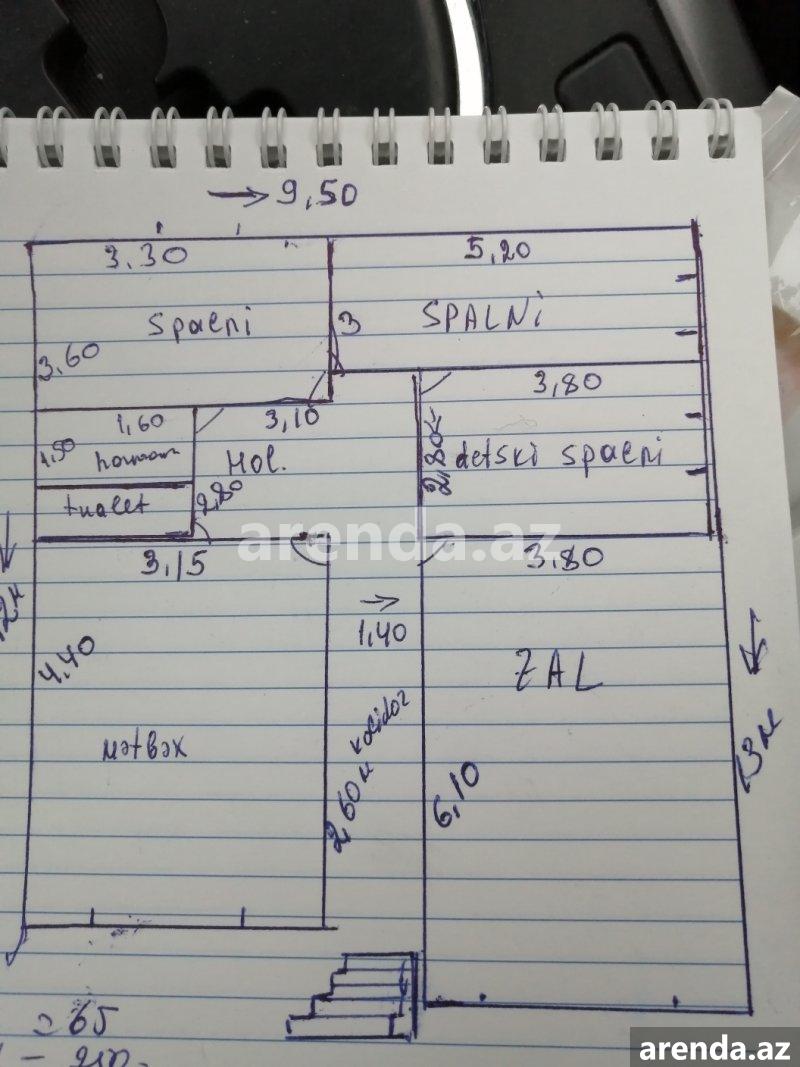 → 9,50
3,30
5,20
Spalni
3
SPALNi
3,60
3,80
1,60
3,10
1,50
hamam
Hol.
2,80
detski spalni
tualet
2,80
arenda.az
3,15
3,80
1,40
4,40
ZAL
koridor
mətbəx
2,60 м
6,10
13 м
= 65
arenda.az